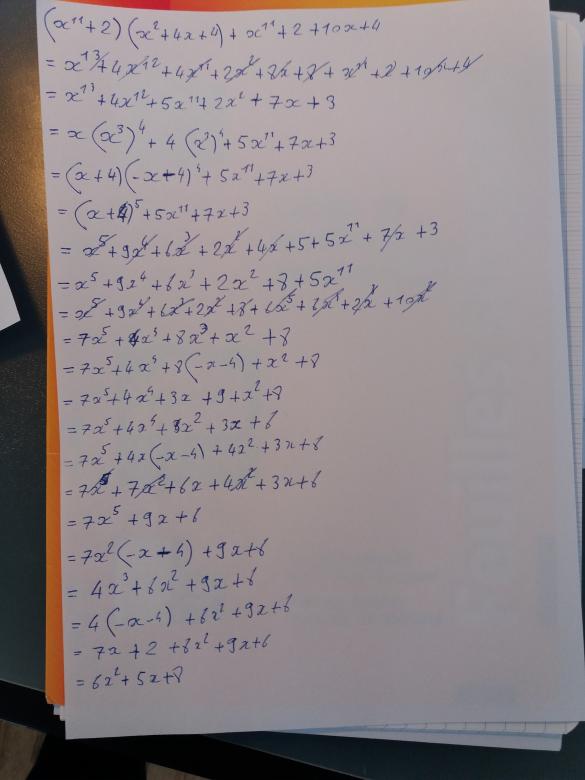 (x¹¹+2)(x²+4x+4)+x¹¹+2+10x+4
=x¹³+4x¹²+4x¹¹+2x²+8x+8+x¹¹+2+10x+4
=x¹³+4x¹²+5x¹¹+2x²+7x+3
=x(x³)⁴+4(x³)⁴+5x¹¹+7x+3
=(x+4)(-x-4)⁴+5x¹¹+7x+3
=(x+4)⁵+5x¹¹+7x+3
=x⁵+9x⁴+6x³+2x²+4x+5+5x¹¹+7x+3
=x⁵+9x⁴+6x³+2x²+8+5x¹¹
=x⁵+9x⁴+6x³+2x²+8+6x⁵
=7x⁵+4x⁴+8x³+x²+8
=7x⁵+4x⁴+8(-x-4)+x²+8
=7x⁵+4x⁴+3x+9+x²+8
=7x⁵+4x⁴+x²+3x+6
=7x⁵+4x(-x-4)+4x²+3x+6
=7x⁵+7x²+6x+4x²+3x+6
=7x⁵+9x+6
=7x²(-x-4)+9x+6
=4x³+6x²+9x+6
=4(-x-4)+6x²+9x+6
=7x+2+6x²+9x+6
=6x²+5x+8